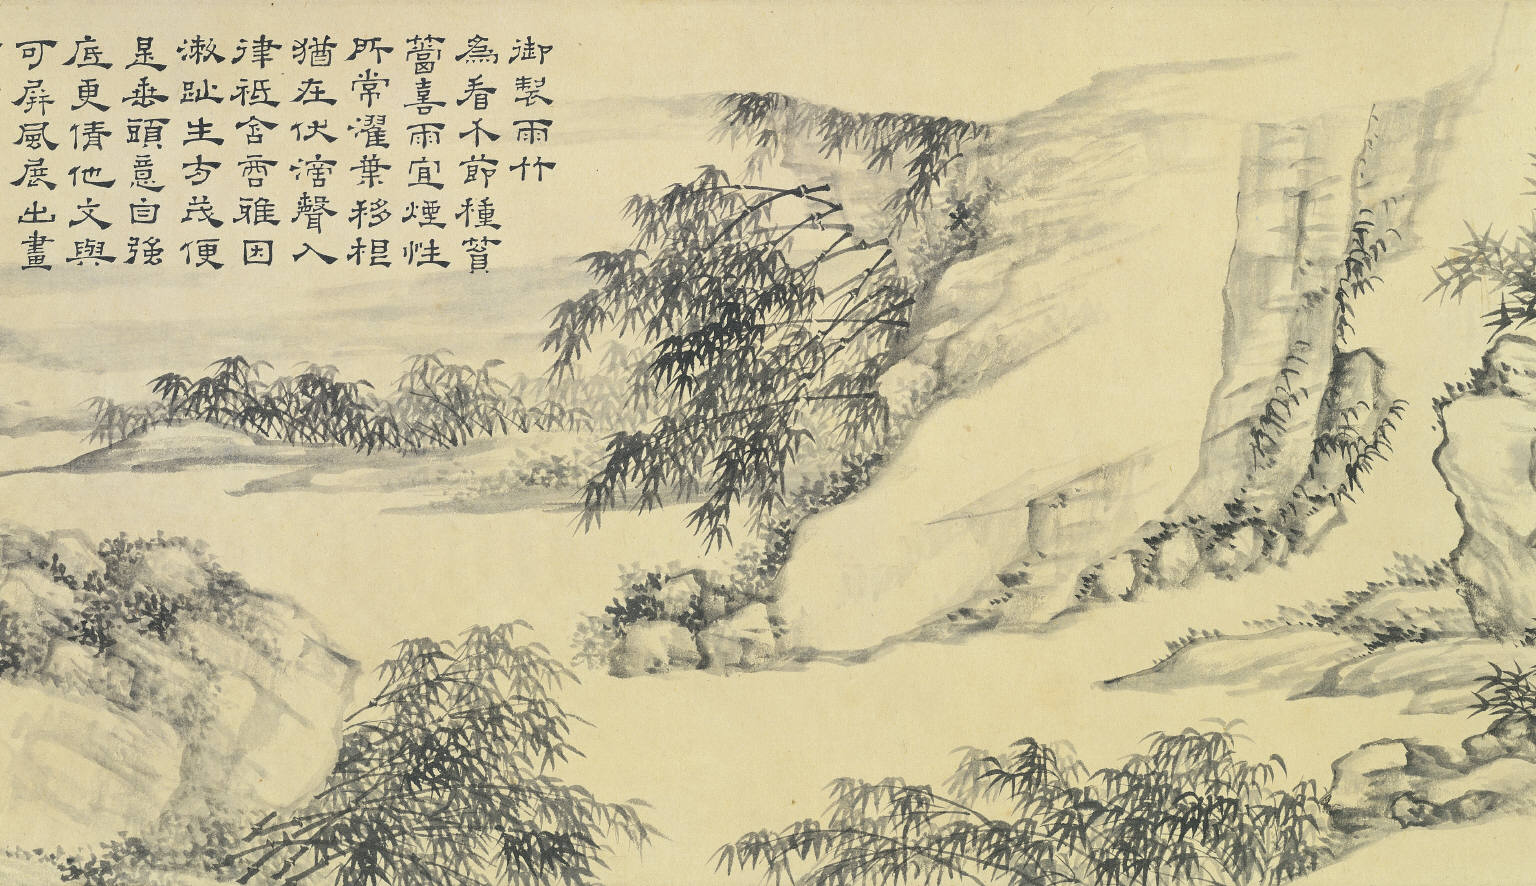 御製雨竹
為看不節種篔
簹喜雨宜煙性
所常濯葉移根
猶在伏滴聲入
律祗含商雅因
漱趾生方茂便
是垂頭意自強
底更倩他文與
可屏風展出畫